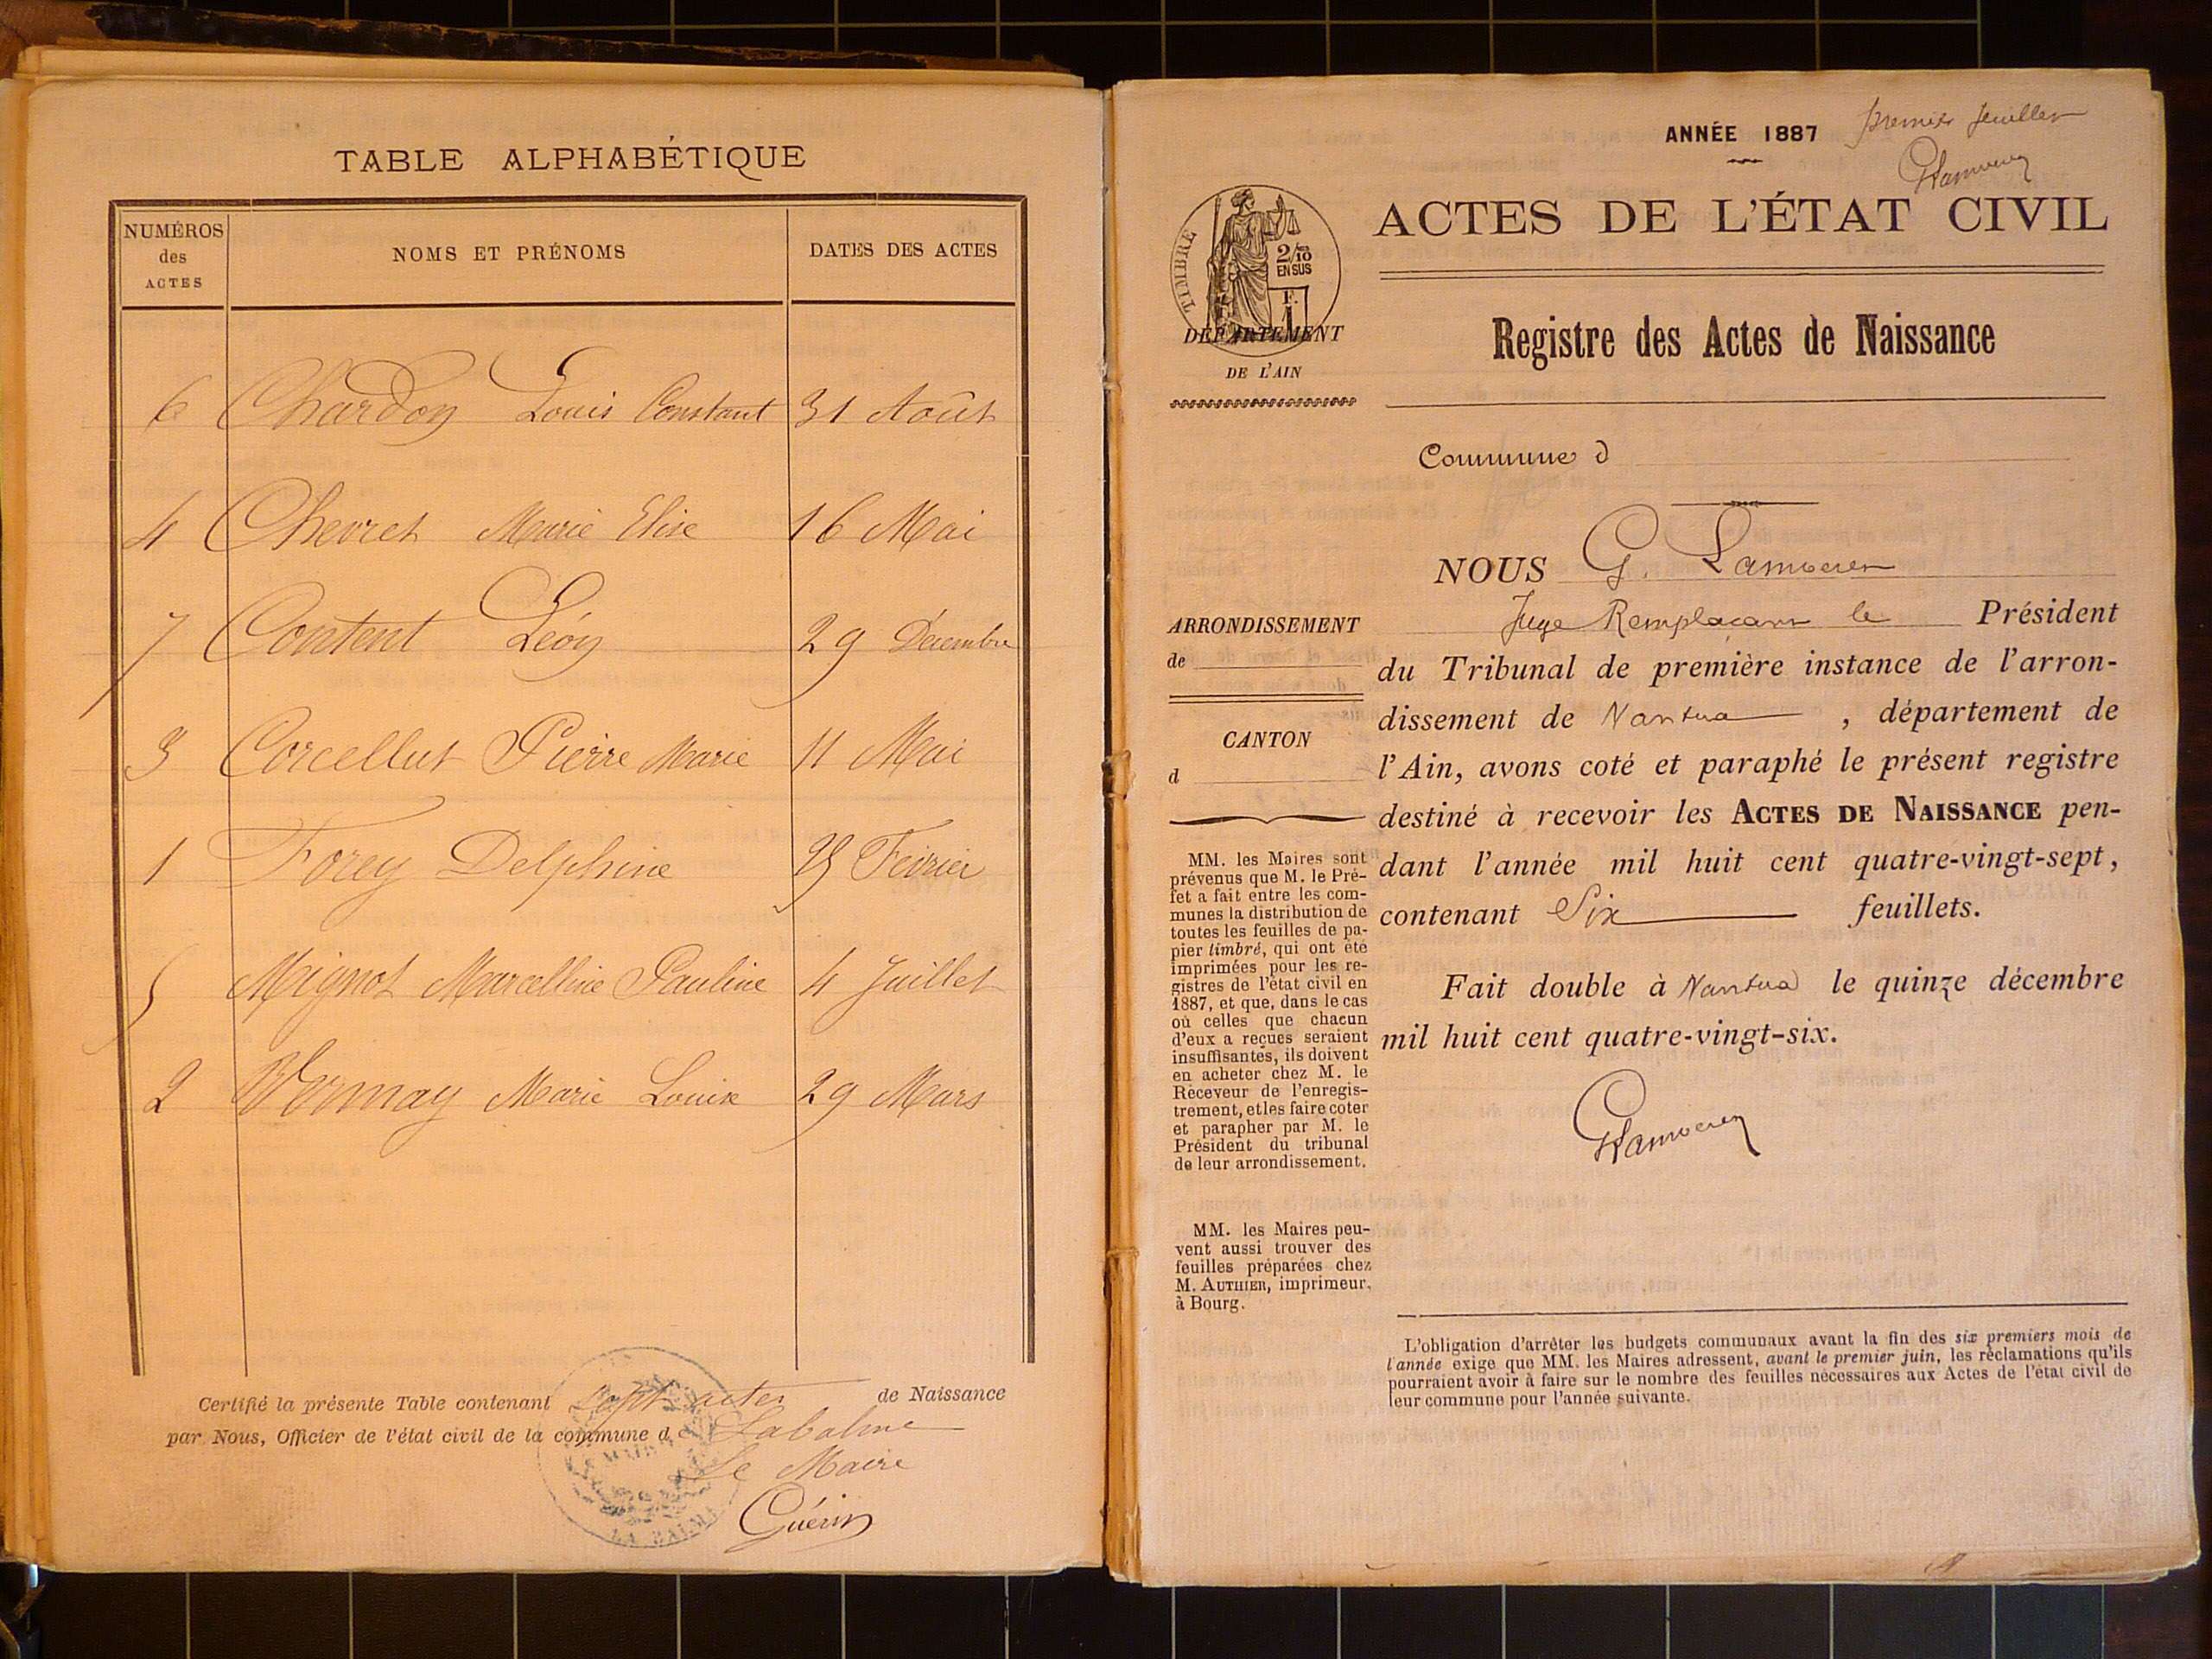 TABLE ALPHABÉTIQUE
NUMÉROS des ACTES
NOMS ET PRÉNOMS
DATES DES ACTES
6 Chardon Louis Constant 31 Août
4 Chevret Marie Elise 16 Mai
7 Content Léon 29 Décembre
3 Corcellut Pierre Marie 11 Mai
1 Forey Delphine 25 Février
5 Mignot Marcelline Pauline 4 Juillet
2 Vernay Marie Louise 29 Mars
Certifié la présente Table contenant sept actes de Naissance
par Nous, Officier de l'état civil de la commune de Labalme
Le Maire
Guérin
MAIRIE
LA BALME
ANNÉE 1887
premier feuillet
GLamberen
TIMBRE
2/10
EN SUS
F.
1
ACTES DE L'ÉTAT CIVIL
DÉPARTEMENT
DE L'AIN
Registre des Actes de Naissance
Commune d
NOUS G.
Juge Remplaçant le Président
du Tribunal de première instance de l'arron-
dissement de Nantua, département de
l'Ain, avons coté et paraphé le présent registre
destiné à recevoir les ACTES DE NAISSANCE pen-
dant l'année mil huit cent quatre-vingt-sept,
contenant Six feuillets.
Fait double à Nantua le quinze décembre
mil huit cent quatre-vingt-six.
ARRONDISSEMENT
de
CANTON
d
MM. les Maires sont
prévenus que M. le Pré-
fet a fait entre les com-
munes la distribution de
toutes les feuilles de pa-
pier timbré, qui ont été
imprimées pour les re-
gistres de l'état civil en
1887, et que, dans le cas
où celles que chacun
d'eux a reçues seraient
insuffisantes, ils doivent
en acheter chez M. le
Receveur de l'enregis-
trement, et les faire coter
et parapher par M. le
Président du tribunal
de leur arrondissement.
MM. les Maires peu-
vent aussi trouver des
feuilles préparées chez
M. AUTHIER, imprimeur,
à Bourg.
L'obligation d'arrêter les budgets communaux avant la fin des six premiers mois de
l'année exige que MM. les Maires adressent, avant le premier juin, les réclamations qu'ils
pourraient avoir à faire sur le nombre des feuilles nécessaires aux Actes de l'état civil de
leur commune pour l'année suivante.